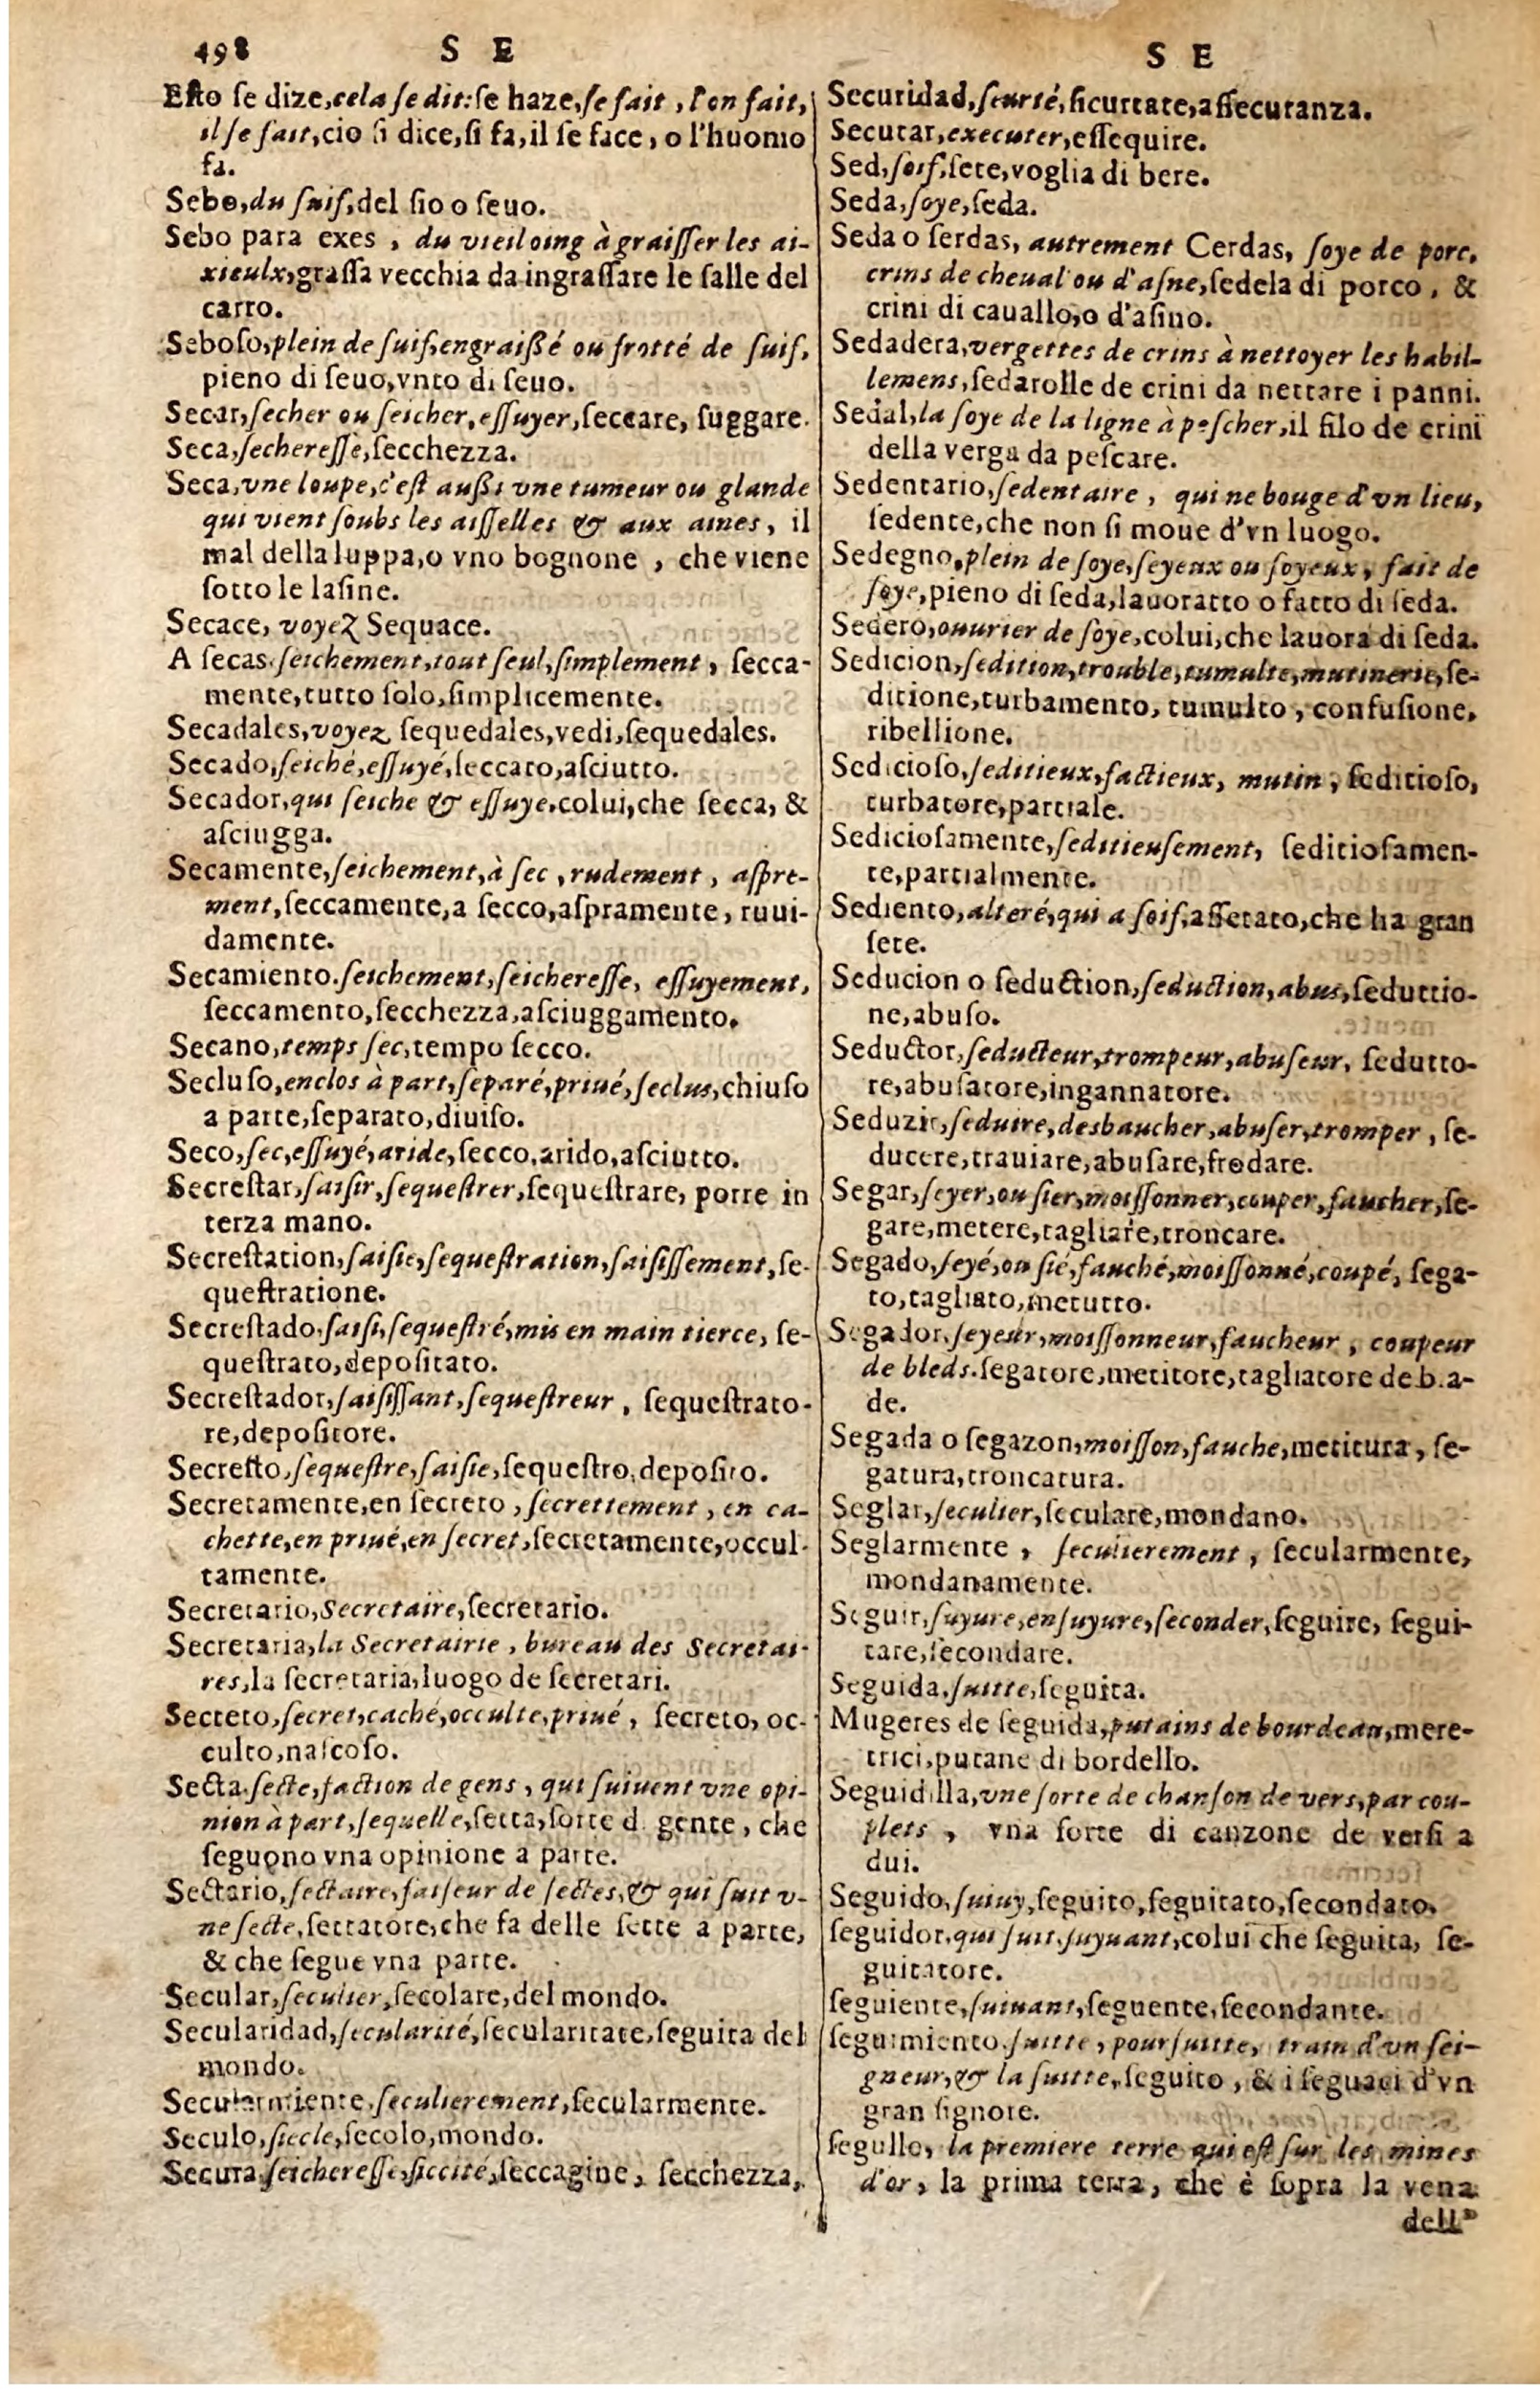 498 S E
Esto se dize, cela se dit: se haze, se fait, l'on fait,
il se fait, cio si dice, si fa, il se face, o l'huomo
fa.
Sebo, du suif, del sio o seuo.
Sebo para exes, du vieil oing à graisser les ai-
xieulx, grassa vecchia da ingrassare le salle del
carro.
Seboso, plein de suif, engraißé ou frotté de suif,
pieno di seuo, vnto di seuo.
Secar, secher ou seicher, essuyer, seccare, suggare.
Seca, secheresse, secchezza.
Seca, vne loupe, c'est außi vne tumeur ou glande
qui vient soubs les aisselles & aux aines, il
mal della luppa, o vno bognone, che viene
sotto le lasine.
Secace, voyez Sequace.
A secas. seichement, tout seul, simplement, secca-
mente, tutto solo, simplicemente.
Secadales, voyez sequedales, vedi, sequedales.
Secado, seiché, essuyé, seccato, asciutto.
Secador, qui seiche & essuye, colui, che secca, &
asciugga.
Secamente, seichement, à sec, rudement, aspre-
ment, seccamente, a secco, aspramente, ruui-
damente.
Secamiento. seichement, seicheresse, essuyement,
seccamento, secchezza, asciuggamento.
Secano, temps sec, tempo secco.
Secluso, enclos à part, separé, priué, seclus, chiuso
a parte, separato, diuiso.
Seco, sec, essuyé, aride, secco, arido, asciutto.
Secrestar, saisir, sequestrer, sequestrare, porre in
terza mano.
Secrestation, saisie, sequestration, saisissement, se-
questratione.
Secrestado. saisi, sequestré, mis en main tierce, se-
questrato, depositato.
Secrestador, saisissant, sequestreur, sequestrato-
re, depositore.
Secresto, sequestre, saisie, sequestro, deposito.
Secretamente, en secreto, secrettement, en ca-
chette, en priué, en secret, secretamente, occul-
tamente.
Secretario, Secretaire, secretario.
Secretaria, la Secretairie, bureau des Secretai-
res, la secretaria, luogo de secretari.
Secreto, secret, caché, occulte, priué, secreto, oc-
culto, nascoso.
Secta. secte, faction de gens, qui suiuent vne opi-
nion à part, sequelle, setta, sorte d gente, che
seguono vna opinione a parte.
Sectario, sectaire, faiseur de sectes, & qui suit v-
ne secte, settatore, che fa delle sette a parte,
& che segue vna parte.
Secular, seculier, secolare, del mondo.
Secularidad, secularité, secularitate, seguita del
mondo.
Secularmiente, seculierement, secularmente.
Seculo, siecle, secolo, mondo.
Secura, seicheresse, siccité, seccagine, secchezza,
S E
Securidad, seurté, sicurtate, assecuranza.
Secutar, executer, essequire.
Sed, soif, sete, voglia di bere.
Seda, soye, seda.
Seda o serdas, autrement Cerdas, soye de porc,
crins de cheual ou d'asne, sedela di porco, &
crini di cauallo, o d'asino.
Sedadera, vergettes de crins à nettoyer les habil-
lemens, sedarolle de crini da nettare i panni.
Sedal, la soye de la ligne à pescher, il filo de crini
della verga da pescare.
Sedentario, sedentaire, qui ne bouge d'vn lieu,
sedente, che non si moue d'vn luogo.
Sedegno, plein de soye, seyeux ou soyeux, fait de
soye, pieno di seda, lauoratto o fatto di seda.
Sedero, ouurier de soye, colui, che lauora di seda.
Sedicion, sedition, trouble, tumulte, mutinerie, se-
ditione, turbamento, tumulto, confusione,
ribellione.
Sedicioso, seditieux, factieux, mutin, seditioso,
turbatore, partiale.
Sediciosamente, seditieusement, seditiosamen-
te, partialmente.
Sediento, alteré, qui a soif, assetato, che ha gran
sete.
Seducion o seduction, seduction, abus, seduttio-
ne, abuso.
Seductor, seducteur, trompeur, abuseur, sedutto-
re, abusatore, ingannatore.
Seduzir, seduire, desbaucher, abuser, tromper, se-
ducere, trauiare, abusare, frodare.
Segar, seyer, ou sier, moissonner, couper, faucher, se-
gare, metere, tagliare, troncare.
Segado, seyé, ou sié, fauché, moissonné, coupé, sega-
to, tagliato, metutto.
Segador, seyeur, moissonneur, faucheur, coupeur
de bleds. segatore, metitore, tagliatore de b.a-
de.
Segada o segazon, moisson, fauche, metitura, se-
gatura, troncatura.
Seglar, seculier, seculare, mondano.
Seglarmente, seculierement, secularmente,
mondanamente.
Seguir, suyure, ensuyure, seconder, seguire, segui-
tare, secondare.
Seguida, suitte, seguita.
Mugeres de seguida, putains de bourdeau, mere-
trici, putane di bordello.
Seguidilla, vne sorte de chanson de vers, par cou-
plets, vna sorte di canzone de versi a
dui.
Seguido, suiuy, seguito, seguitato, secondato.
seguidor, qui suit, suyuant, colui che seguita, se-
guitatore.
seguiente, suiuant, seguente, secondante.
seguimiento. suitte, poursuitte, train d'vn sei-
gneur, & la suitte, seguito, & i seguaci d'vn
gran signore.
segullo, la premiere terre qui est sur les mines
d'or, la prima terra, che è sopra la vena
dell'